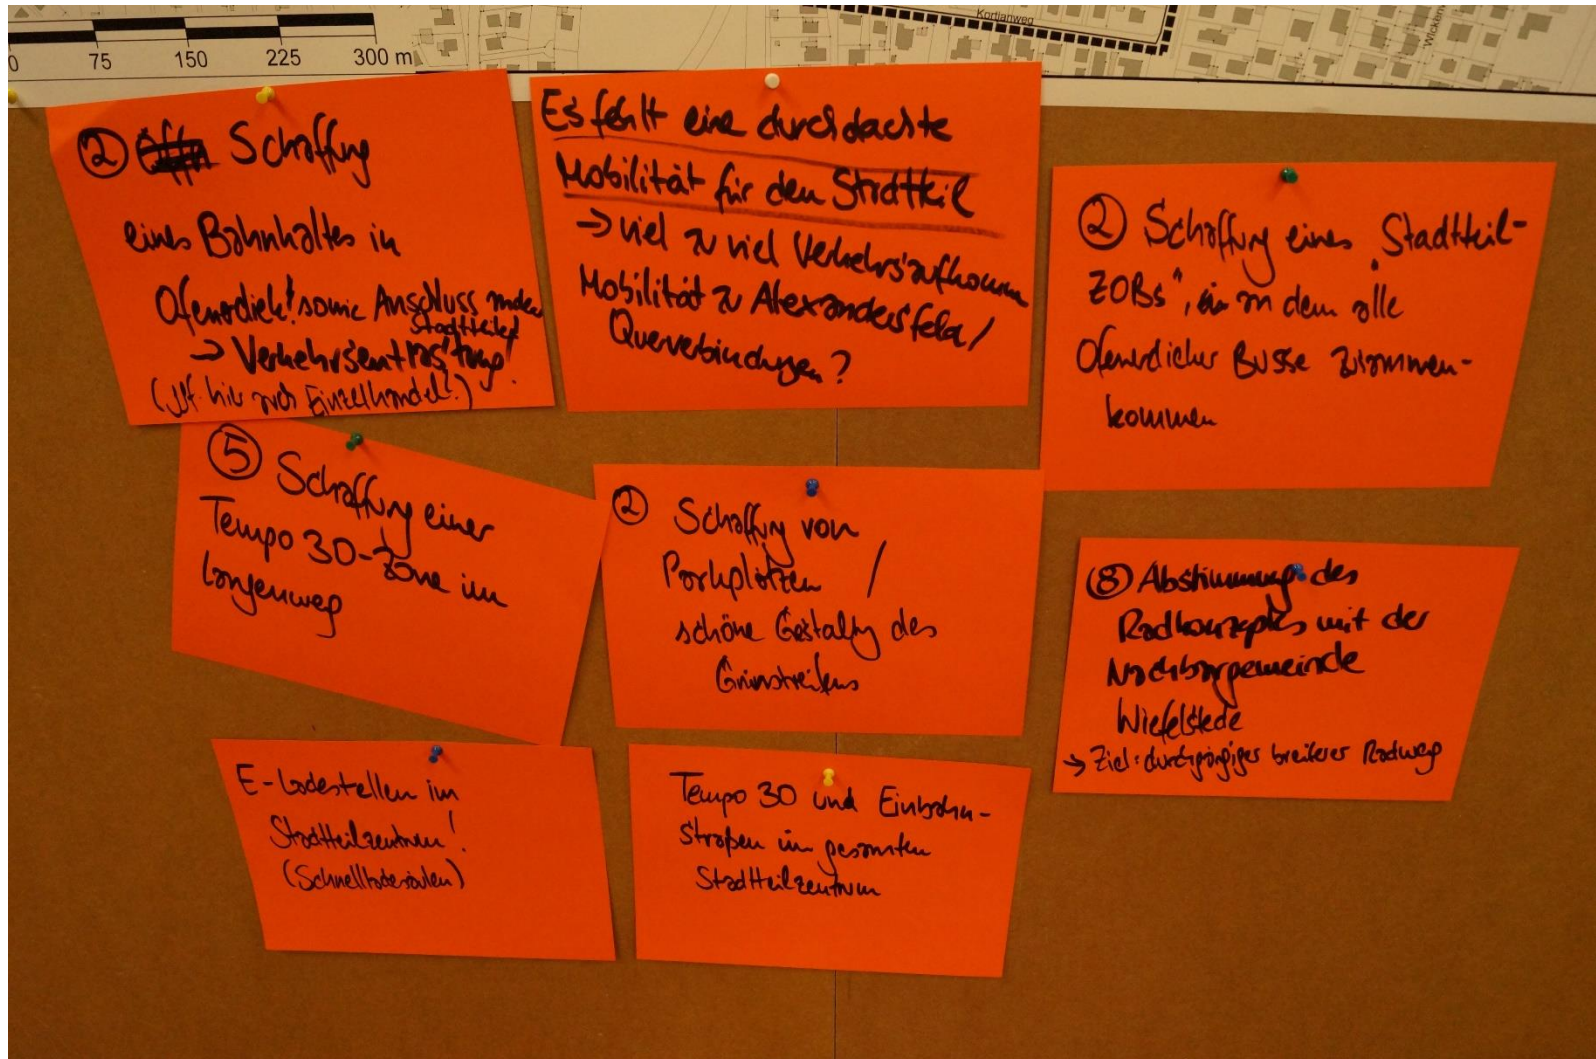 0 75 150 225 300 m
Kortlahweg
Wickenw
② Schaffung
eines Bahnhaltes in
Ofenerdiek! sowie Anschluss andere
Stadtteile!
→ Verkehrsentlastung!
(ggf. hier auch Einzelhandel?)
Es fehlt eine durchdachte
Mobilität für den Stadtteil
→ viel zu viel Verkehrsaufkommen
Mobilität zu Alexandersfeld /
Querverbindungen?
② Schaffung eines „Stadtteil-
ZOBs", an dem alle
Ofenerdieker Busse zusammen-
kommen
⑤ Schaffung einer
Tempo 30-Zone im
Langenweg
② Schaffung von
Parkplätzen /
schöne Gestaltung des
Grünstreifens
⑧ Abstimmung des
Radkonzeptes mit der
Nachbargemeinde
Wiefelstede
→ Ziel: durchgängiger breiterer Radweg
E-Ladestellen im
Stadtteilzentrum!
(Schnellladesäulen)
Tempo 30 und Einbahn-
straßen im gesamten
Stadtteilzentrum